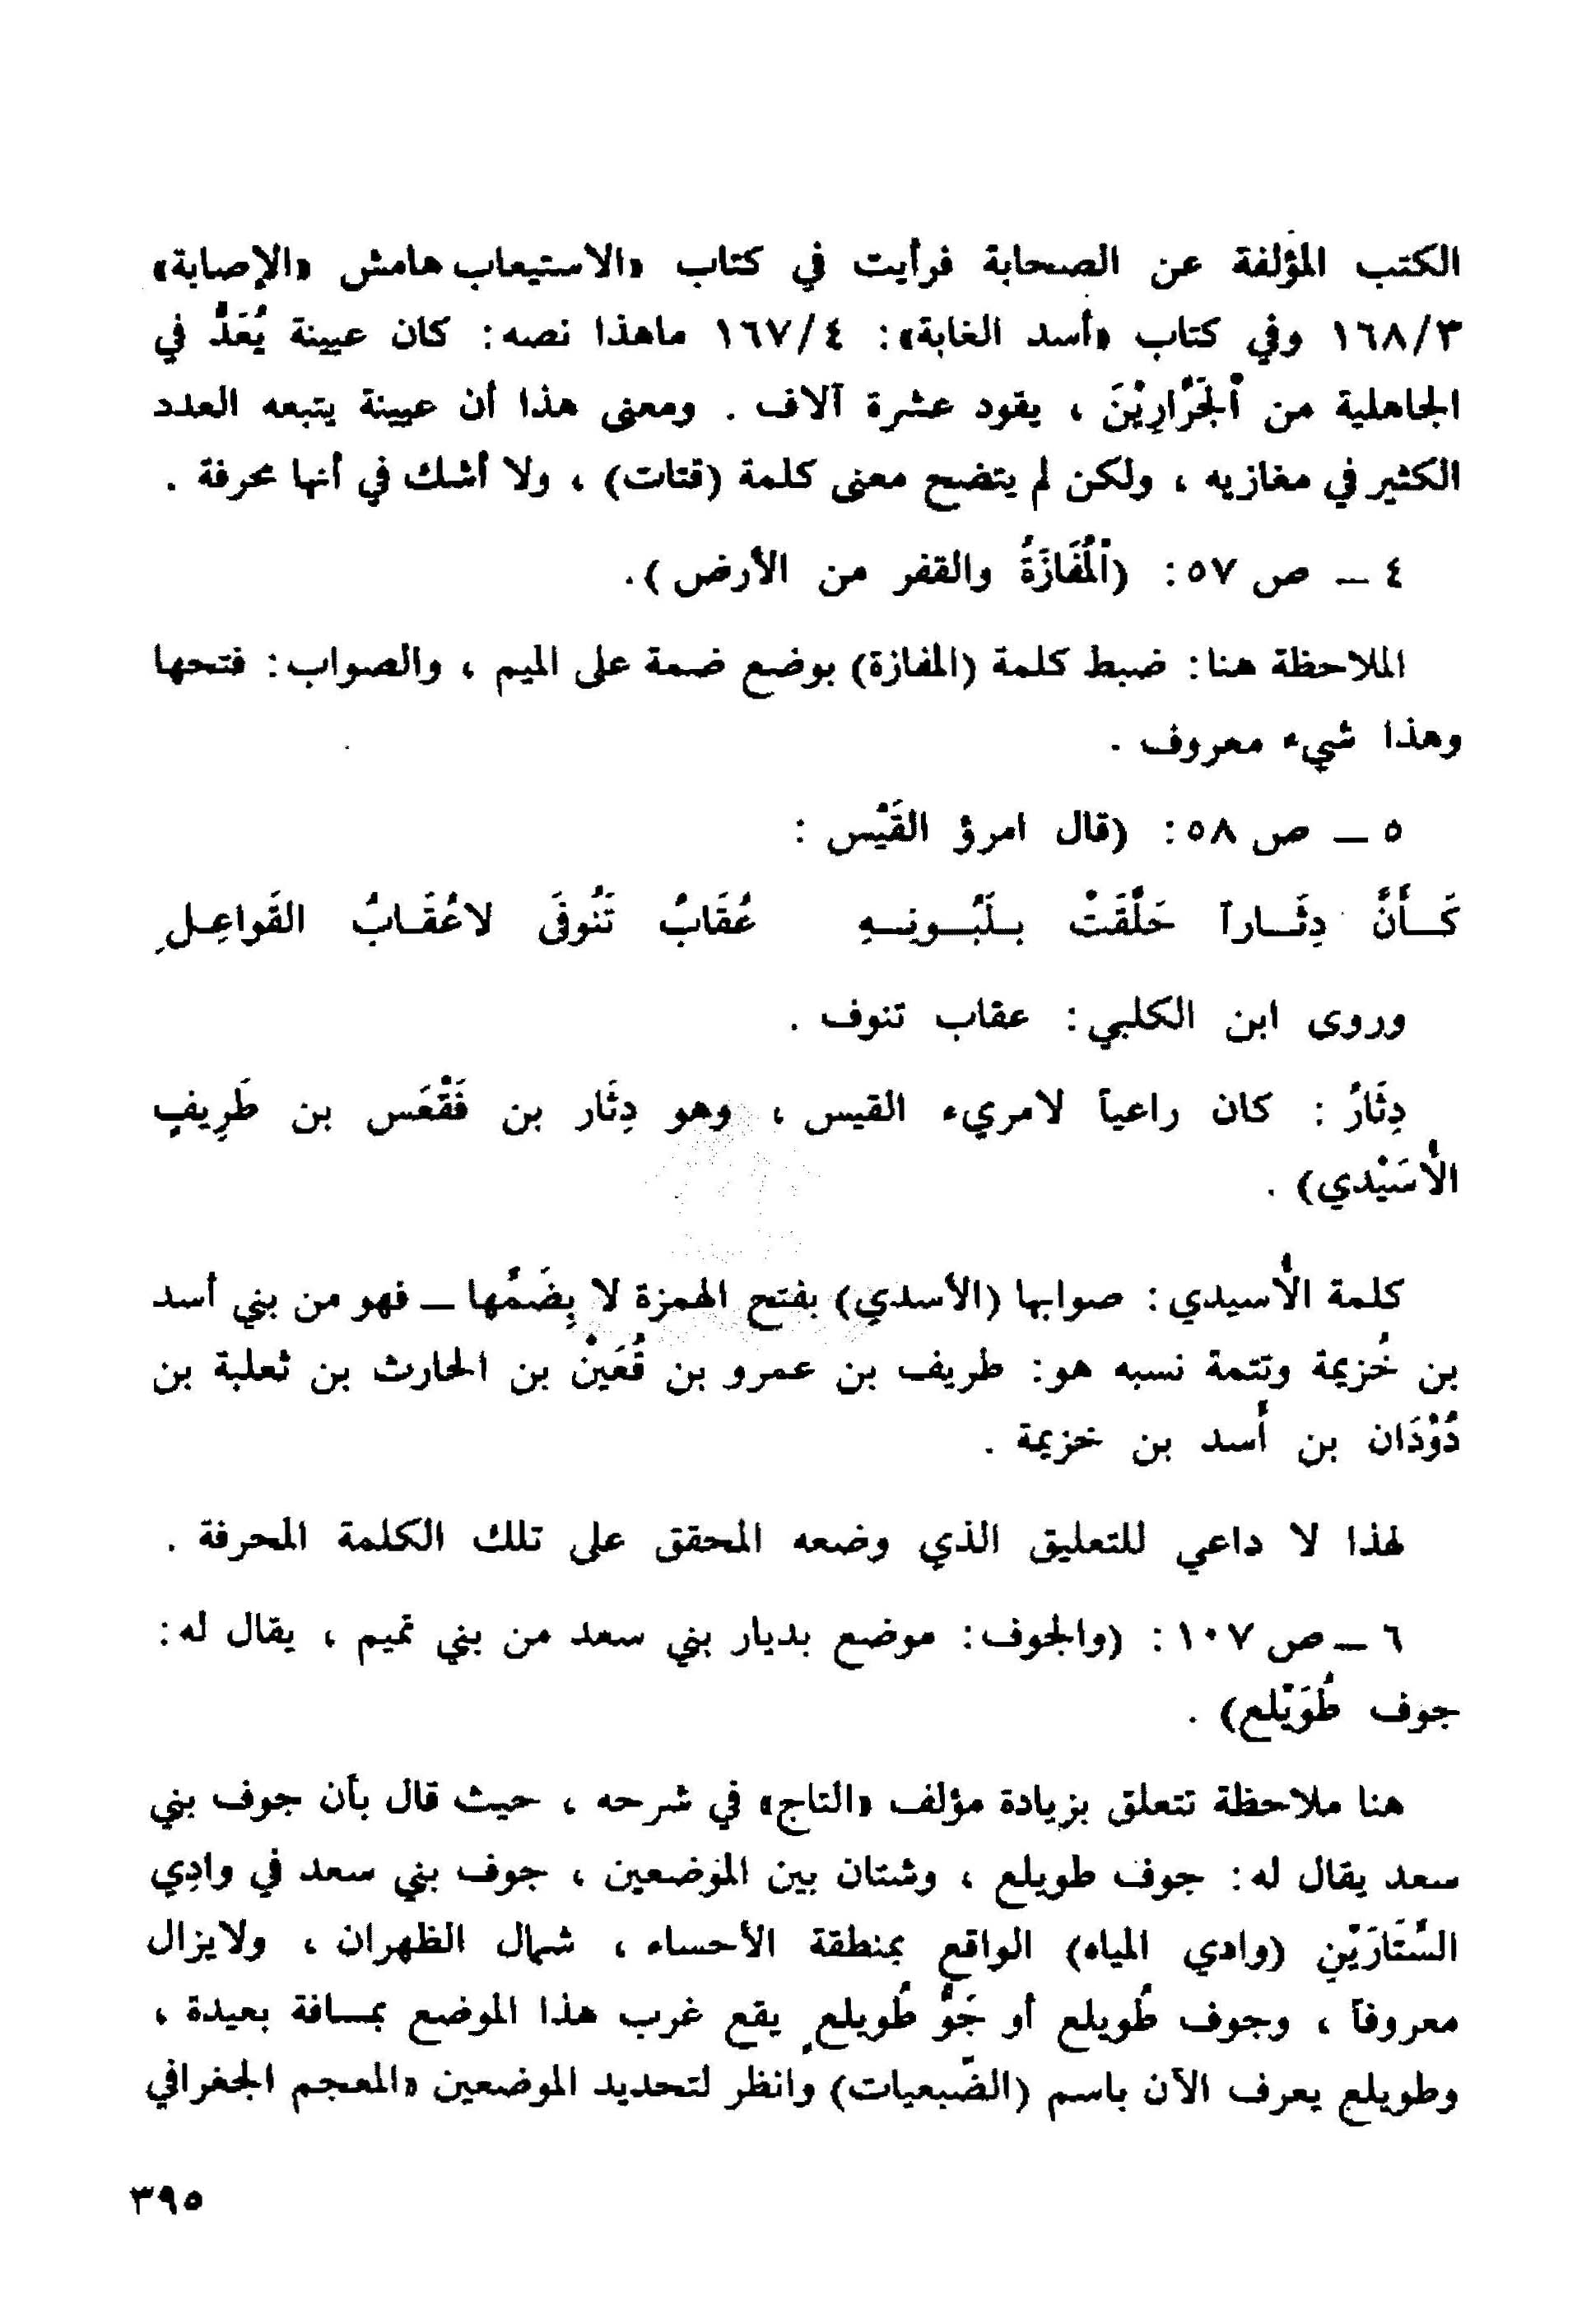 الكتب المؤلفة عن الصحابة فرأيت في كتاب «الاستيعاب هامش «الإصابة»
٣/١٦٨ وفي كتاب «أسد الغابة»: ٤/١٦٧ ماهذا نصه: كان عيينة يُعَدُّ في
الجاهلية من اْلجَرَّارِيْنَ ، يقود عشرة آلاف . ومعنى هذا أن عيينة يتبعه العدد
الكثير في مغازيه ، ولكن لم يتضح معنى كلمة (قتات) ، ولا أشك في أنها محرفة .
٤ ــ ص ٥٧: (اْلمُفَازَةُ والقفر من الأرض ).
الملاحظة هنا: ضبط كلمة (المفازة) بوضع ضمة على الميم ، والصواب: فتحها
وهذا شيء معروف .
٥ ــ ص ٥٨: (قال امرؤ القَيْس :
كَـأَنَّ دِثَـاراً حَلَّقَتْ بـلَبُـونِـهِ عُقَابُ تَنُوفَى لاعُقَـابُ القَواعِـلِ
وروى ابن الكلبي: عقاب تنوف .
دِثَارُ : كان راعياً لامريء القيس ، وهو دِثَار بن فَقْعَس بن طَرِيفٍ
الأُسَيْدي) .
كلمة الأُسيدي: صوابها (الأسدي) بفتح الهمزة لا بِضَمِّها ــ فهو من بني أسد
بن خُزيمة وتتمة نسبه هو: طريف بن عمرو بن قُعَيْن بن الحارث بن ثعلبة بن
دُوْدَان بن أَسد بن خزيمة .
لهذا لا داعي للتعليق الذي وضعه المحقق على تلك الكلمة المحرفة .
٦ ــ ص ١٠٧: (والجوف: موضع بديار بني سعد من بني تميم ، يقال له:
جوف طُوَيْلع) .
هنا ملاحظة تتعلق بزيادة مؤلف «التاج» في شرحه ، حيث قال بأن جوف بني
سعد يقال له: جوف طويلع ، وشتان بين الموضعين ، جوف بني سعد في وادِي
السِّتَارَيْنِ (وادي المياه) الواقع بمنطقة الأحساء ، شمال الظهران ، ولايزال
معروفاً ، وجوف طُويلع أو جَوُّ طُويلعٍ يقع غرب هذا الموضع بمسافة بعيدة ،
وطويلع يعرف الآن باسم (الضّبعيات) وانظر لتحديد الموضعين «المعجم الجغرافي
٣٩٥